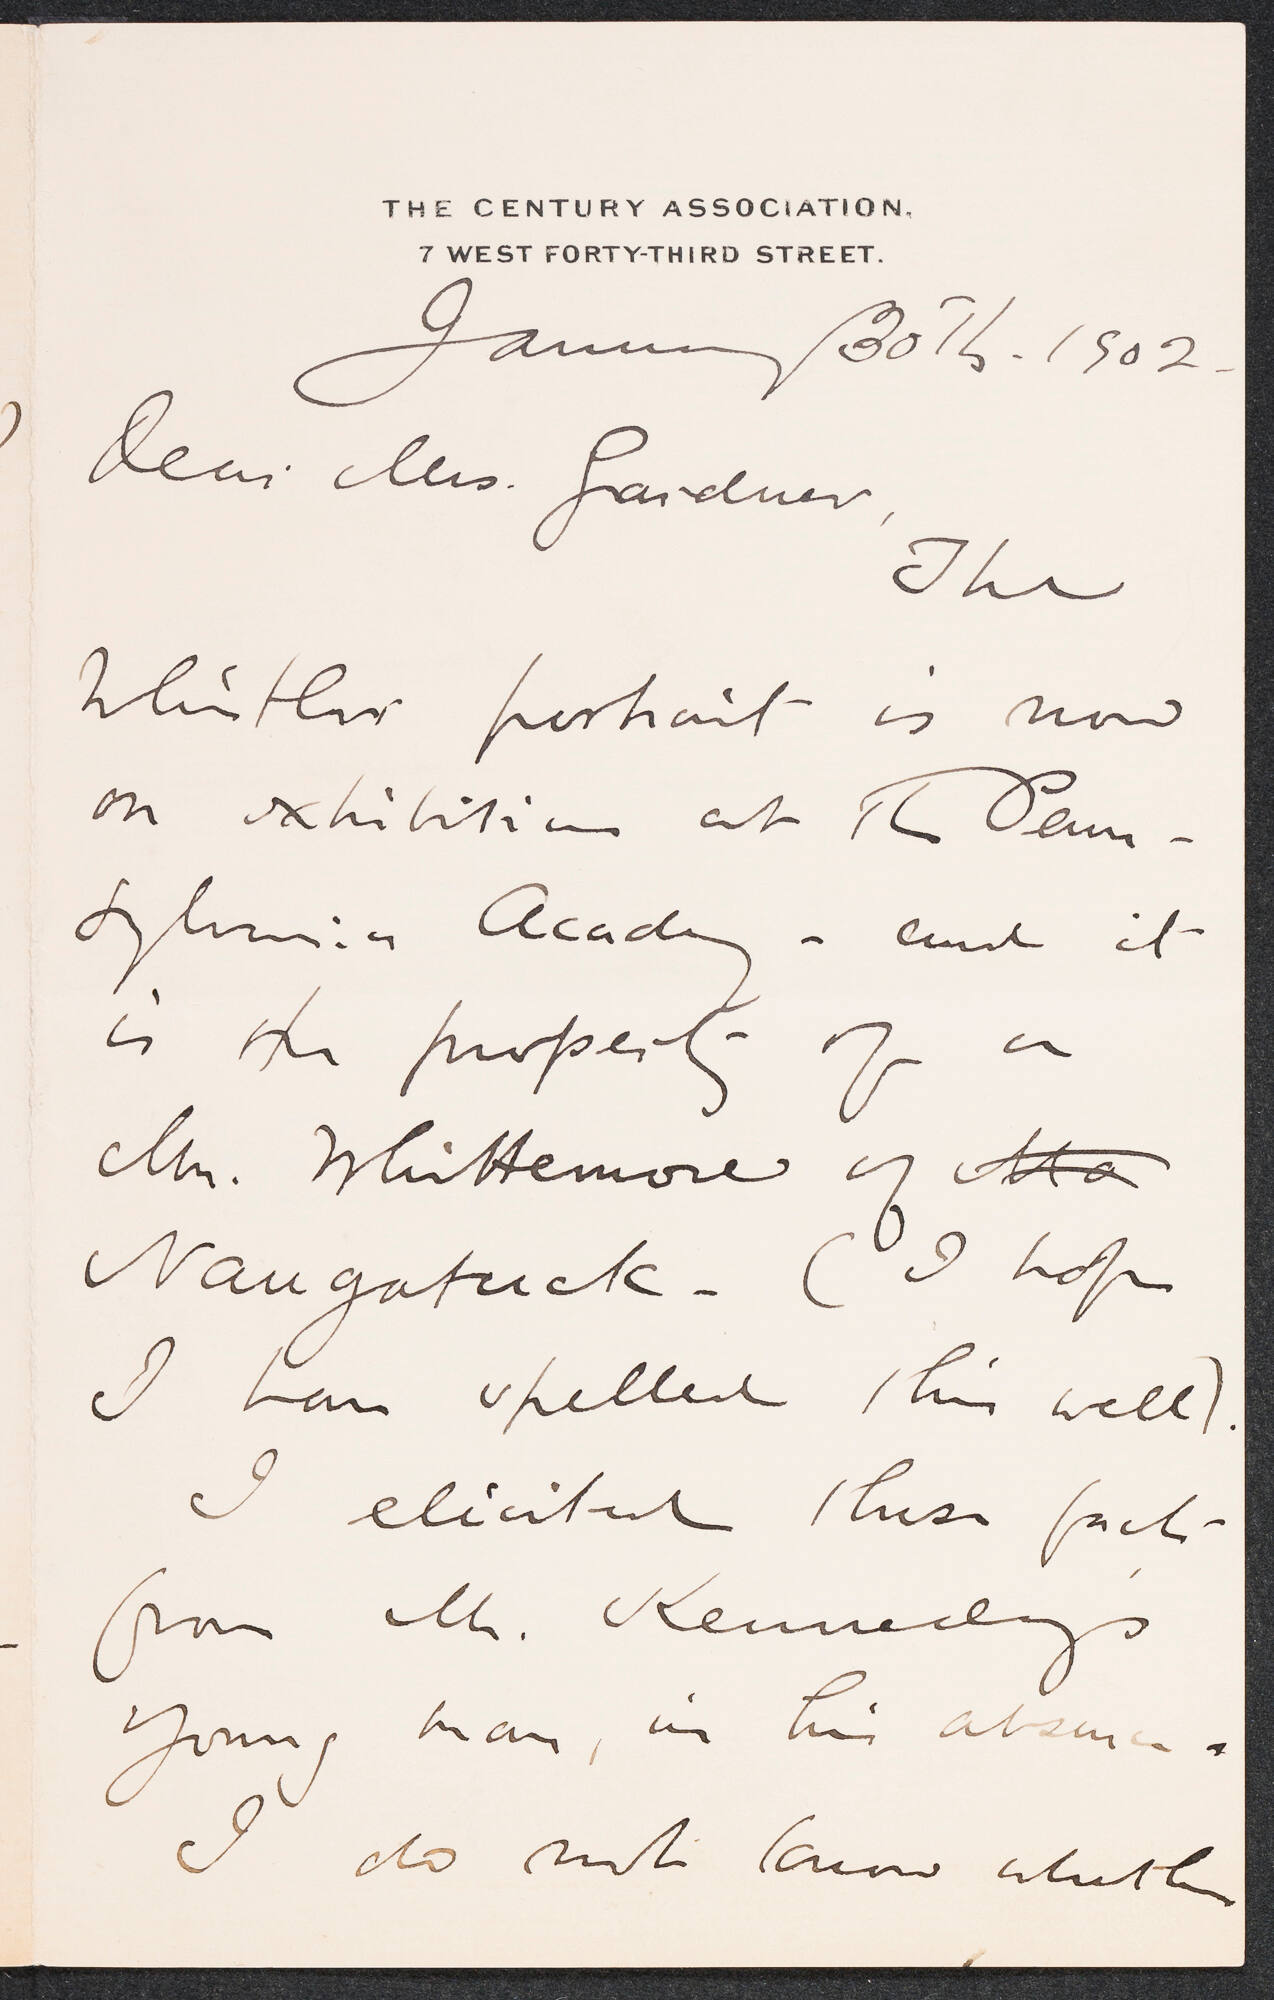 THE CENTURY ASSOCIATION.
7 WEST FORTY-THIRD STREET.
January 30th. 1902.
Dear Mrs. Gardner,
The
Whistler portrait is now
on exhibition at the Penn-
sylvania Academy - and it
is the property of a
Mr. Whittemore of
Naugatuck - (I hope
I have spelled this well).
I elicited these facts
from Mr. Kennedy's
young man, in his absence.
I do not know whether